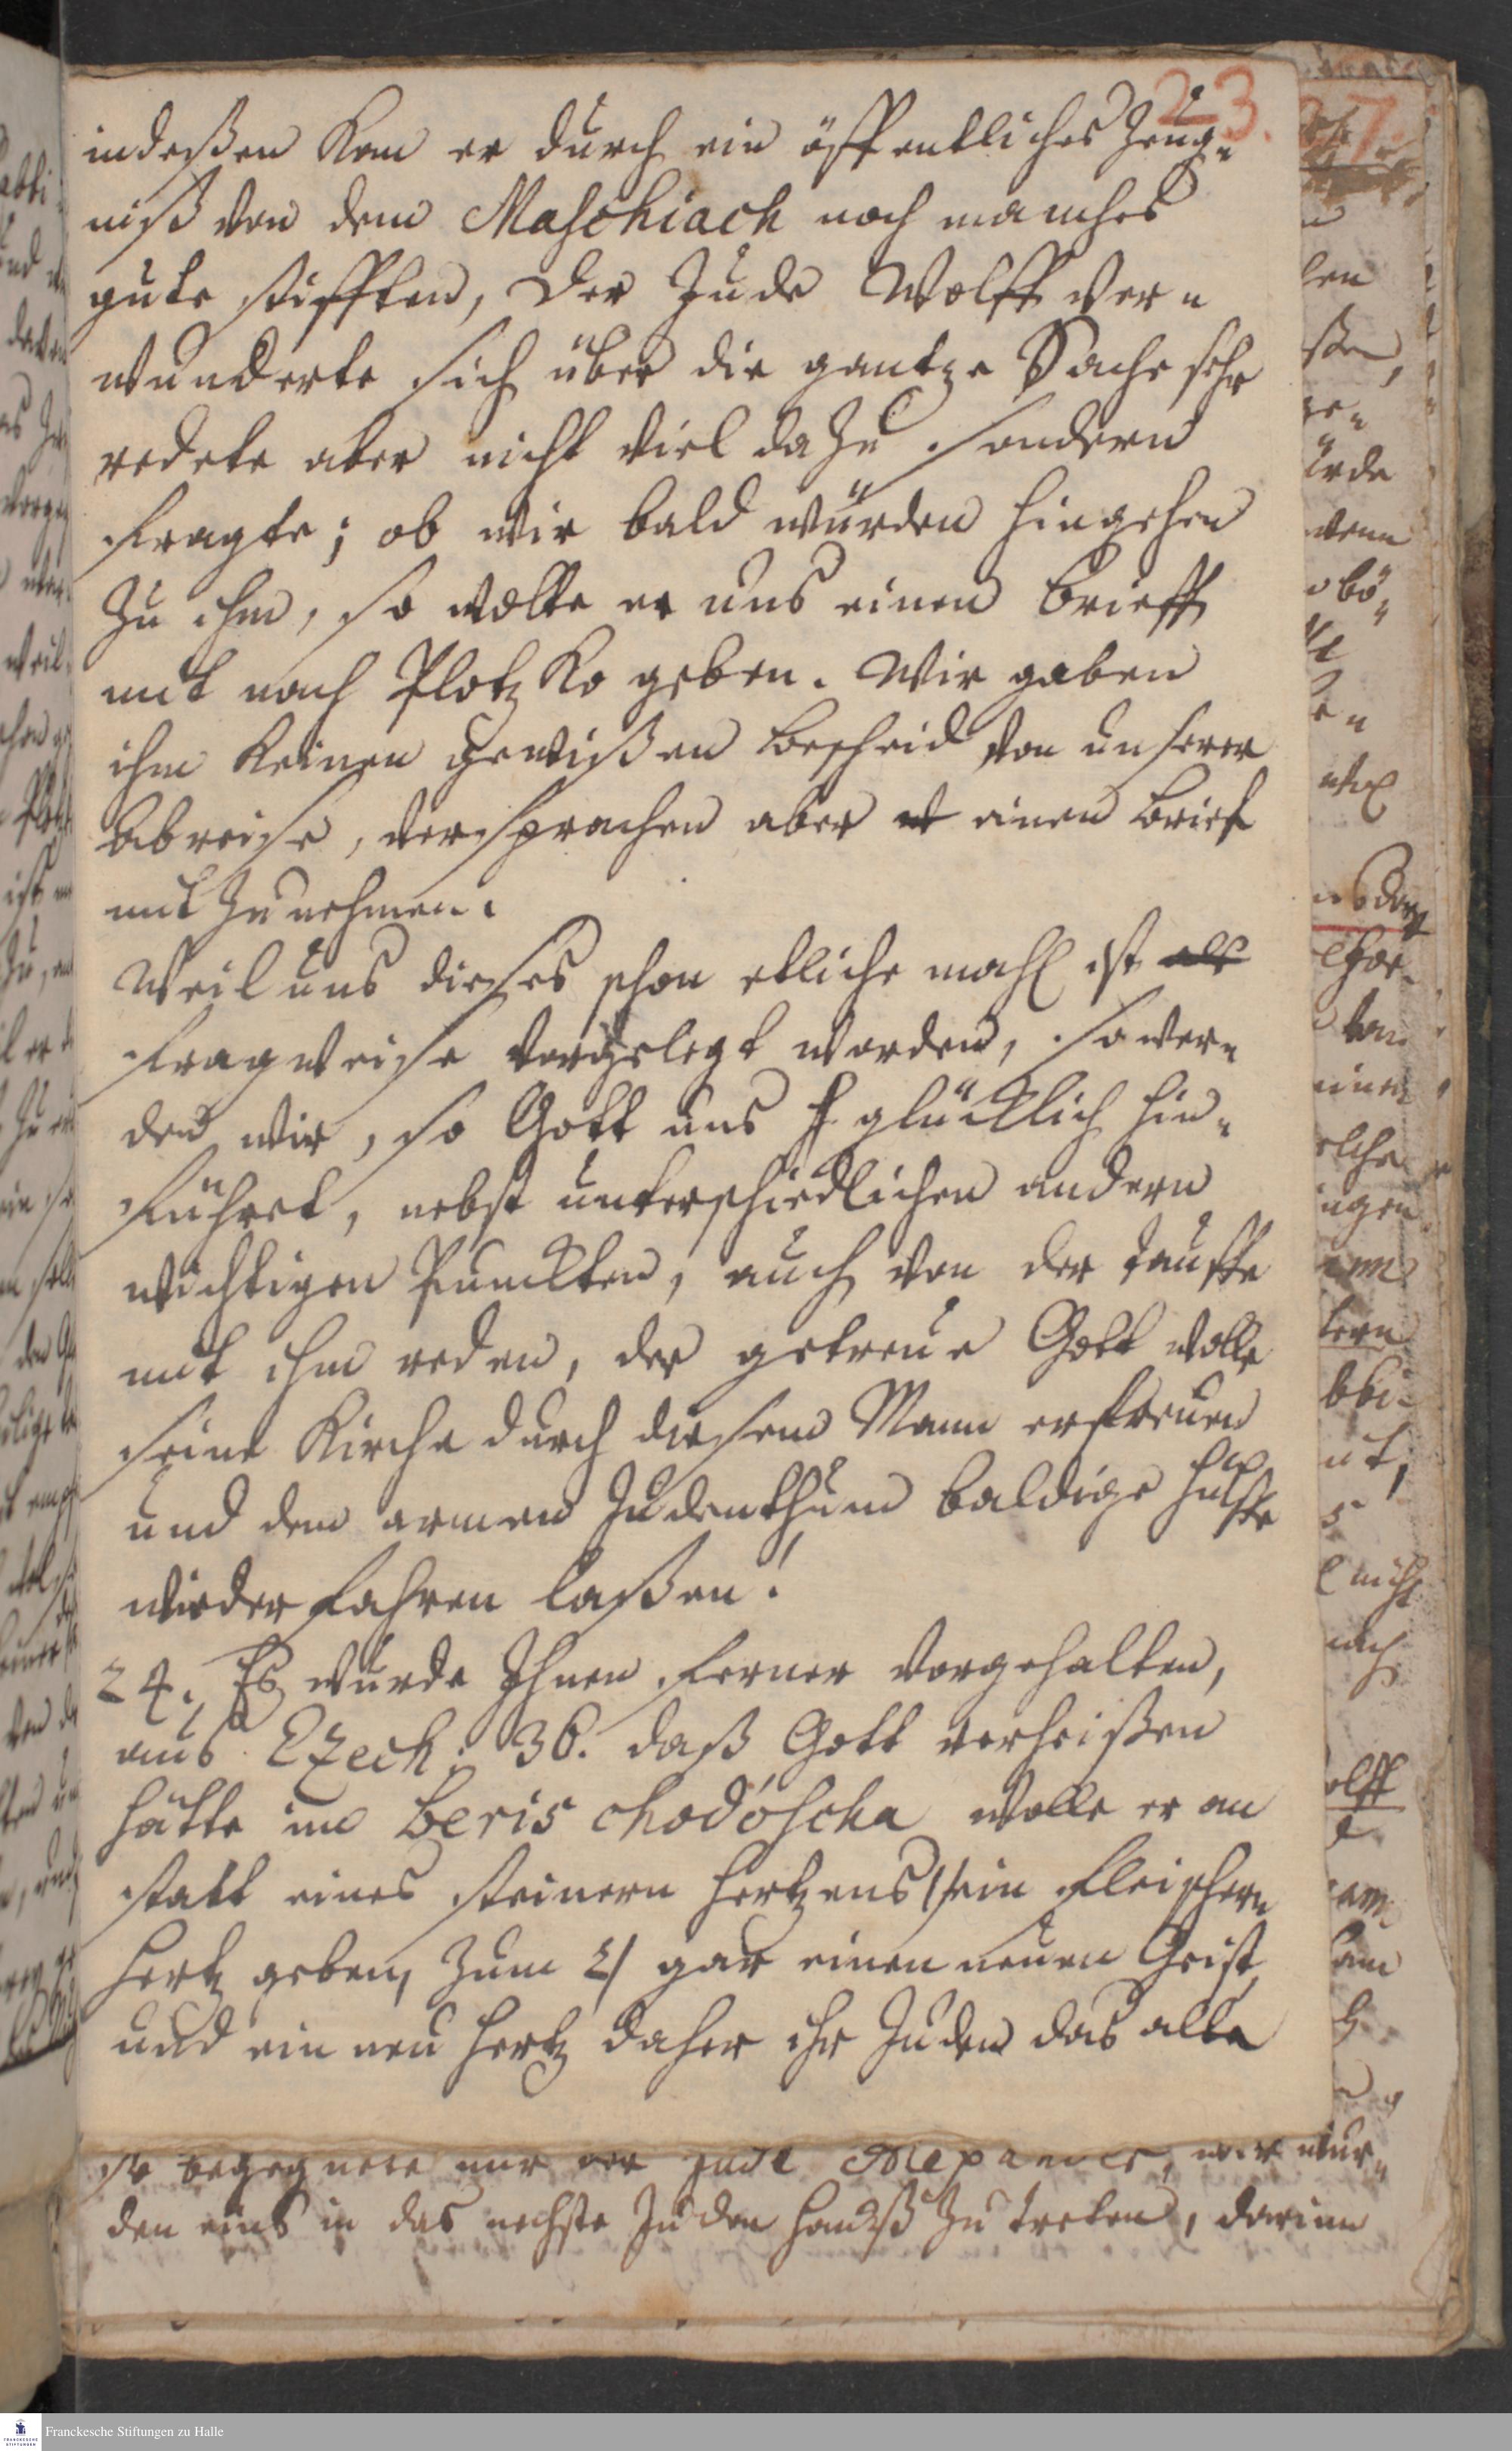 23.
indeßen kan er durch ein öffentliches Zeug-
niß von dem Maschiach noch manches
gute stifften, Der Jude Wolff ver-
wunderte sich über die gantze Sache sehr
redete aber nicht viel dazu sondern
fragte; ob wir bald würden hingehen
zu ihm, so wolte er uns einen brieff
mit nach Plotzko geben. Wir gaben
ihm keinen gewißen bescheid von unserer
Abreise, versprachen aber einen brief
mit zu nehmen.
Weil uns dieses schon etliche mahl ist als
fragweise vorgelegt worden, so wer-
den wir, so Gott uns glücklich hin-
führet, nebst unterschiedlichen andern
wichtigen Puncten, auch von der tauffe
mit ihm reden, der getreue Gott wolle
seine Kirche durch diesen Mann erfreuen
und dem armen Judenthum baldige hülffe
wiederfahren laßen!
24. Es wurde Ihnen ferner vorgehalten,
aus Ezech: 36. daß Gott verheißen
hätte im beris chodöscha wolle er an
statt eines steinern hertzens 1/ ein fleischern
hertz geben, zum 2/ gar einen neuen Geist,
und ein neu hertz daher ihr Juden das alte
so begegnete mir der Jude Alexander, wir wur-
den eins in das nechste Juden hauß zu treten, darinn
Franckesche Stiftungen zu Halle